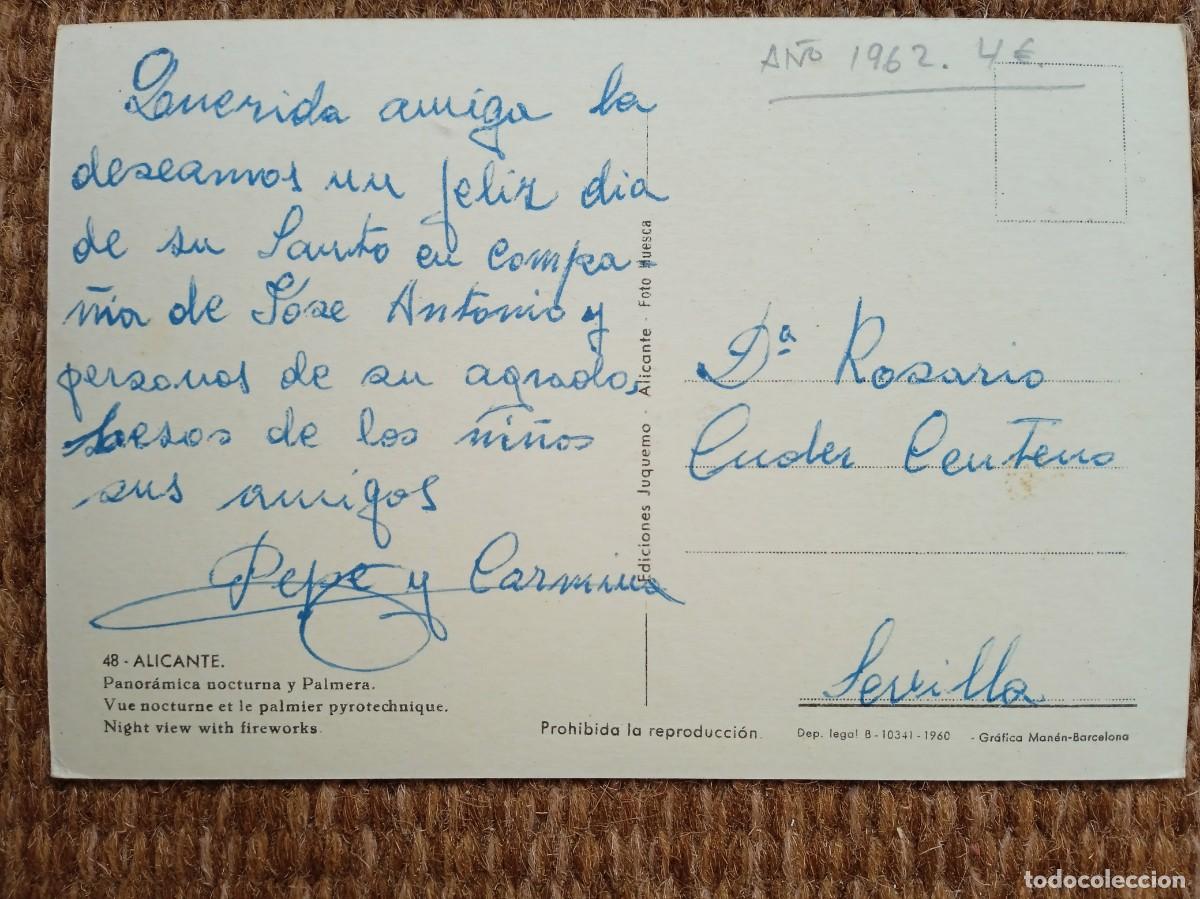 AÑO 1962. 4€.
Querida amiga la
deseamos un feliz dia
de su Santo en compa-
ñia de Jose Antonio y
personas de su agrado,
besos de los niños
sus amigos
Pepe y Carmina
48 - ALICANTE.
Panorámica nocturna y Palmera.
Vue nocturne et le palmier pyrotechnique.
Night view with fireworks.
Ediciones Juquemo · Alicante · Foto Huesca
Prohibida la reproducción.
Dª Rosario
Cuder Centeno
Sevilla
Dep. legal B - 10341 - 1960 - Gráfica Manén-Barcelona
todocoleccion